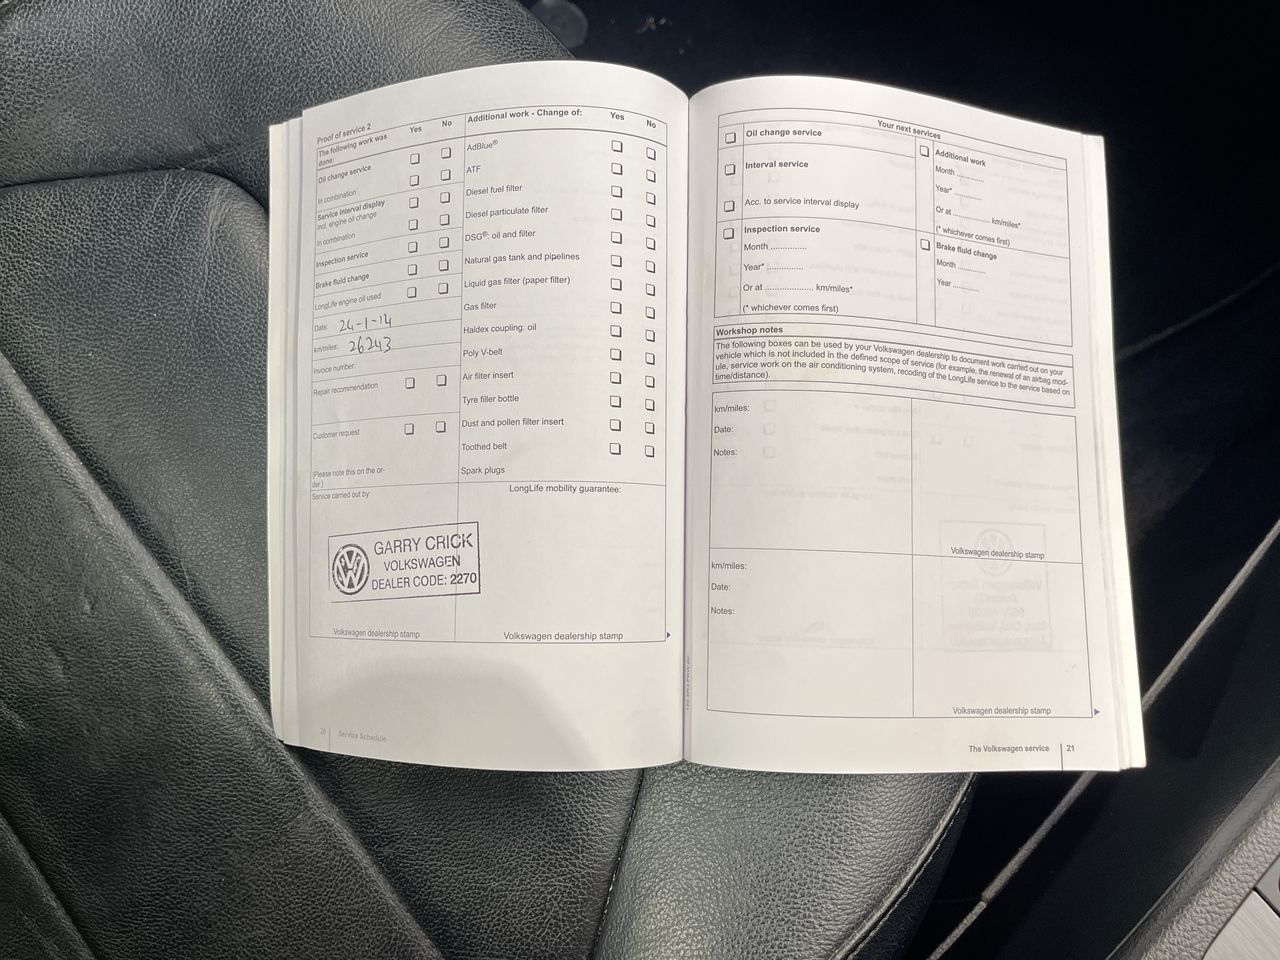 Proof of service 2
The following work was done:
Yes
No
Oil change service
In combination
Service Interval display
incl. engine oil change
In combination
Inspection service
Brake fluid change
LongLife engine oil used
Date: 24-1-14
km/miles: 26243
Invoice number:
Repair recommendation
Customer request
(Please note this on the or-
der.)
Service carried out by:
GARRY CRICK
VOLKSWAGEN
DEALER CODE: 2270
Volkswagen dealership stamp
Additional work - Change of:
Yes
No
AdBlue®
ATF
Diesel fuel filter
Diesel particulate filter
DSG®: oil and filter
Natural gas tank and pipelines
Liquid gas filter (paper filter)
Gas filter
Haldex coupling: oil
Poly V-belt
Air filter insert
Tyre filler bottle
Dust and pollen filter insert
Toothed belt
Spark plugs
LongLife mobility guarantee:
Volkswagen dealership stamp
20 Service Schedule
Your next services
Oil change service
Interval service
Acc. to service interval display
Inspection service
Month ..............
Year* ..............
Or at ................... km/miles*
(* whichever comes first)
Additional work
Month ..........
Year* ..........
Or at .............. km/miles*
(* whichever comes first)
Brake fluid change
Month ..........
Year ..........
Workshop notes
The following boxes can be used by your Volkswagen dealership to document work carried out on your
vehicle which is not included in the defined scope of service (for example, the renewal of an airbag mod-
ule, service work on the air conditioning system, recoding of the LongLife service to the service based on
time/distance).
km/miles:
Date:
Notes:
Volkswagen dealership stamp
km/miles:
Date:
Notes:
Volkswagen dealership stamp
The Volkswagen service 21